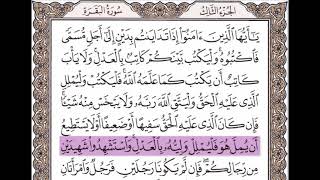 الجزء الثالث سورة البقرة
يَٰٓأَيُّهَا ٱلَّذِينَ ءَامَنُوٓاْ إِذَا تَدَايَنتُم بِدَيْنٍ إِلَىٰٓ أَجَلٍ مُّسَمًّى
فَٱكْتُبُوهُ وَلْيَكْتُب بَّيْنَكُمْ كَاتِبٌۢ بِٱلْعَدْلِ وَلَا يَأْبَ
كَاتِبٌ أَن يَكْتُبَ كَمَا عَلَّمَهُ ٱللَّهُ فَلْيَكْتُبْ وَلْيُمْلِلِ
ٱلَّذِى عَلَيْهِ ٱلْحَقُّ وَلْيَتَّقِ ٱللَّهَ رَبَّهُۥ وَلَا يَبْخَسْ مِنْهُ شَيْـًٔا
فَإِن كَانَ ٱلَّذِى عَلَيْهِ ٱلْحَقُّ سَفِيهًا أَوْ ضَعِيفًا أَوْ لَا يَسْتَطِيعُ
أَن يُمِلَّ هُوَ فَلْيُمْلِلْ وَلِيُّهُۥ بِٱلْعَدْلِ وَٱسْتَشْهِدُواْ شَهِيدَيْنِ
مِن رِّجَالِكُمْ فَإِن لَّمْ يَكُونَا رَجُلَيْنِ فَرَجُلٌ وَٱمْرَأَتَانِ